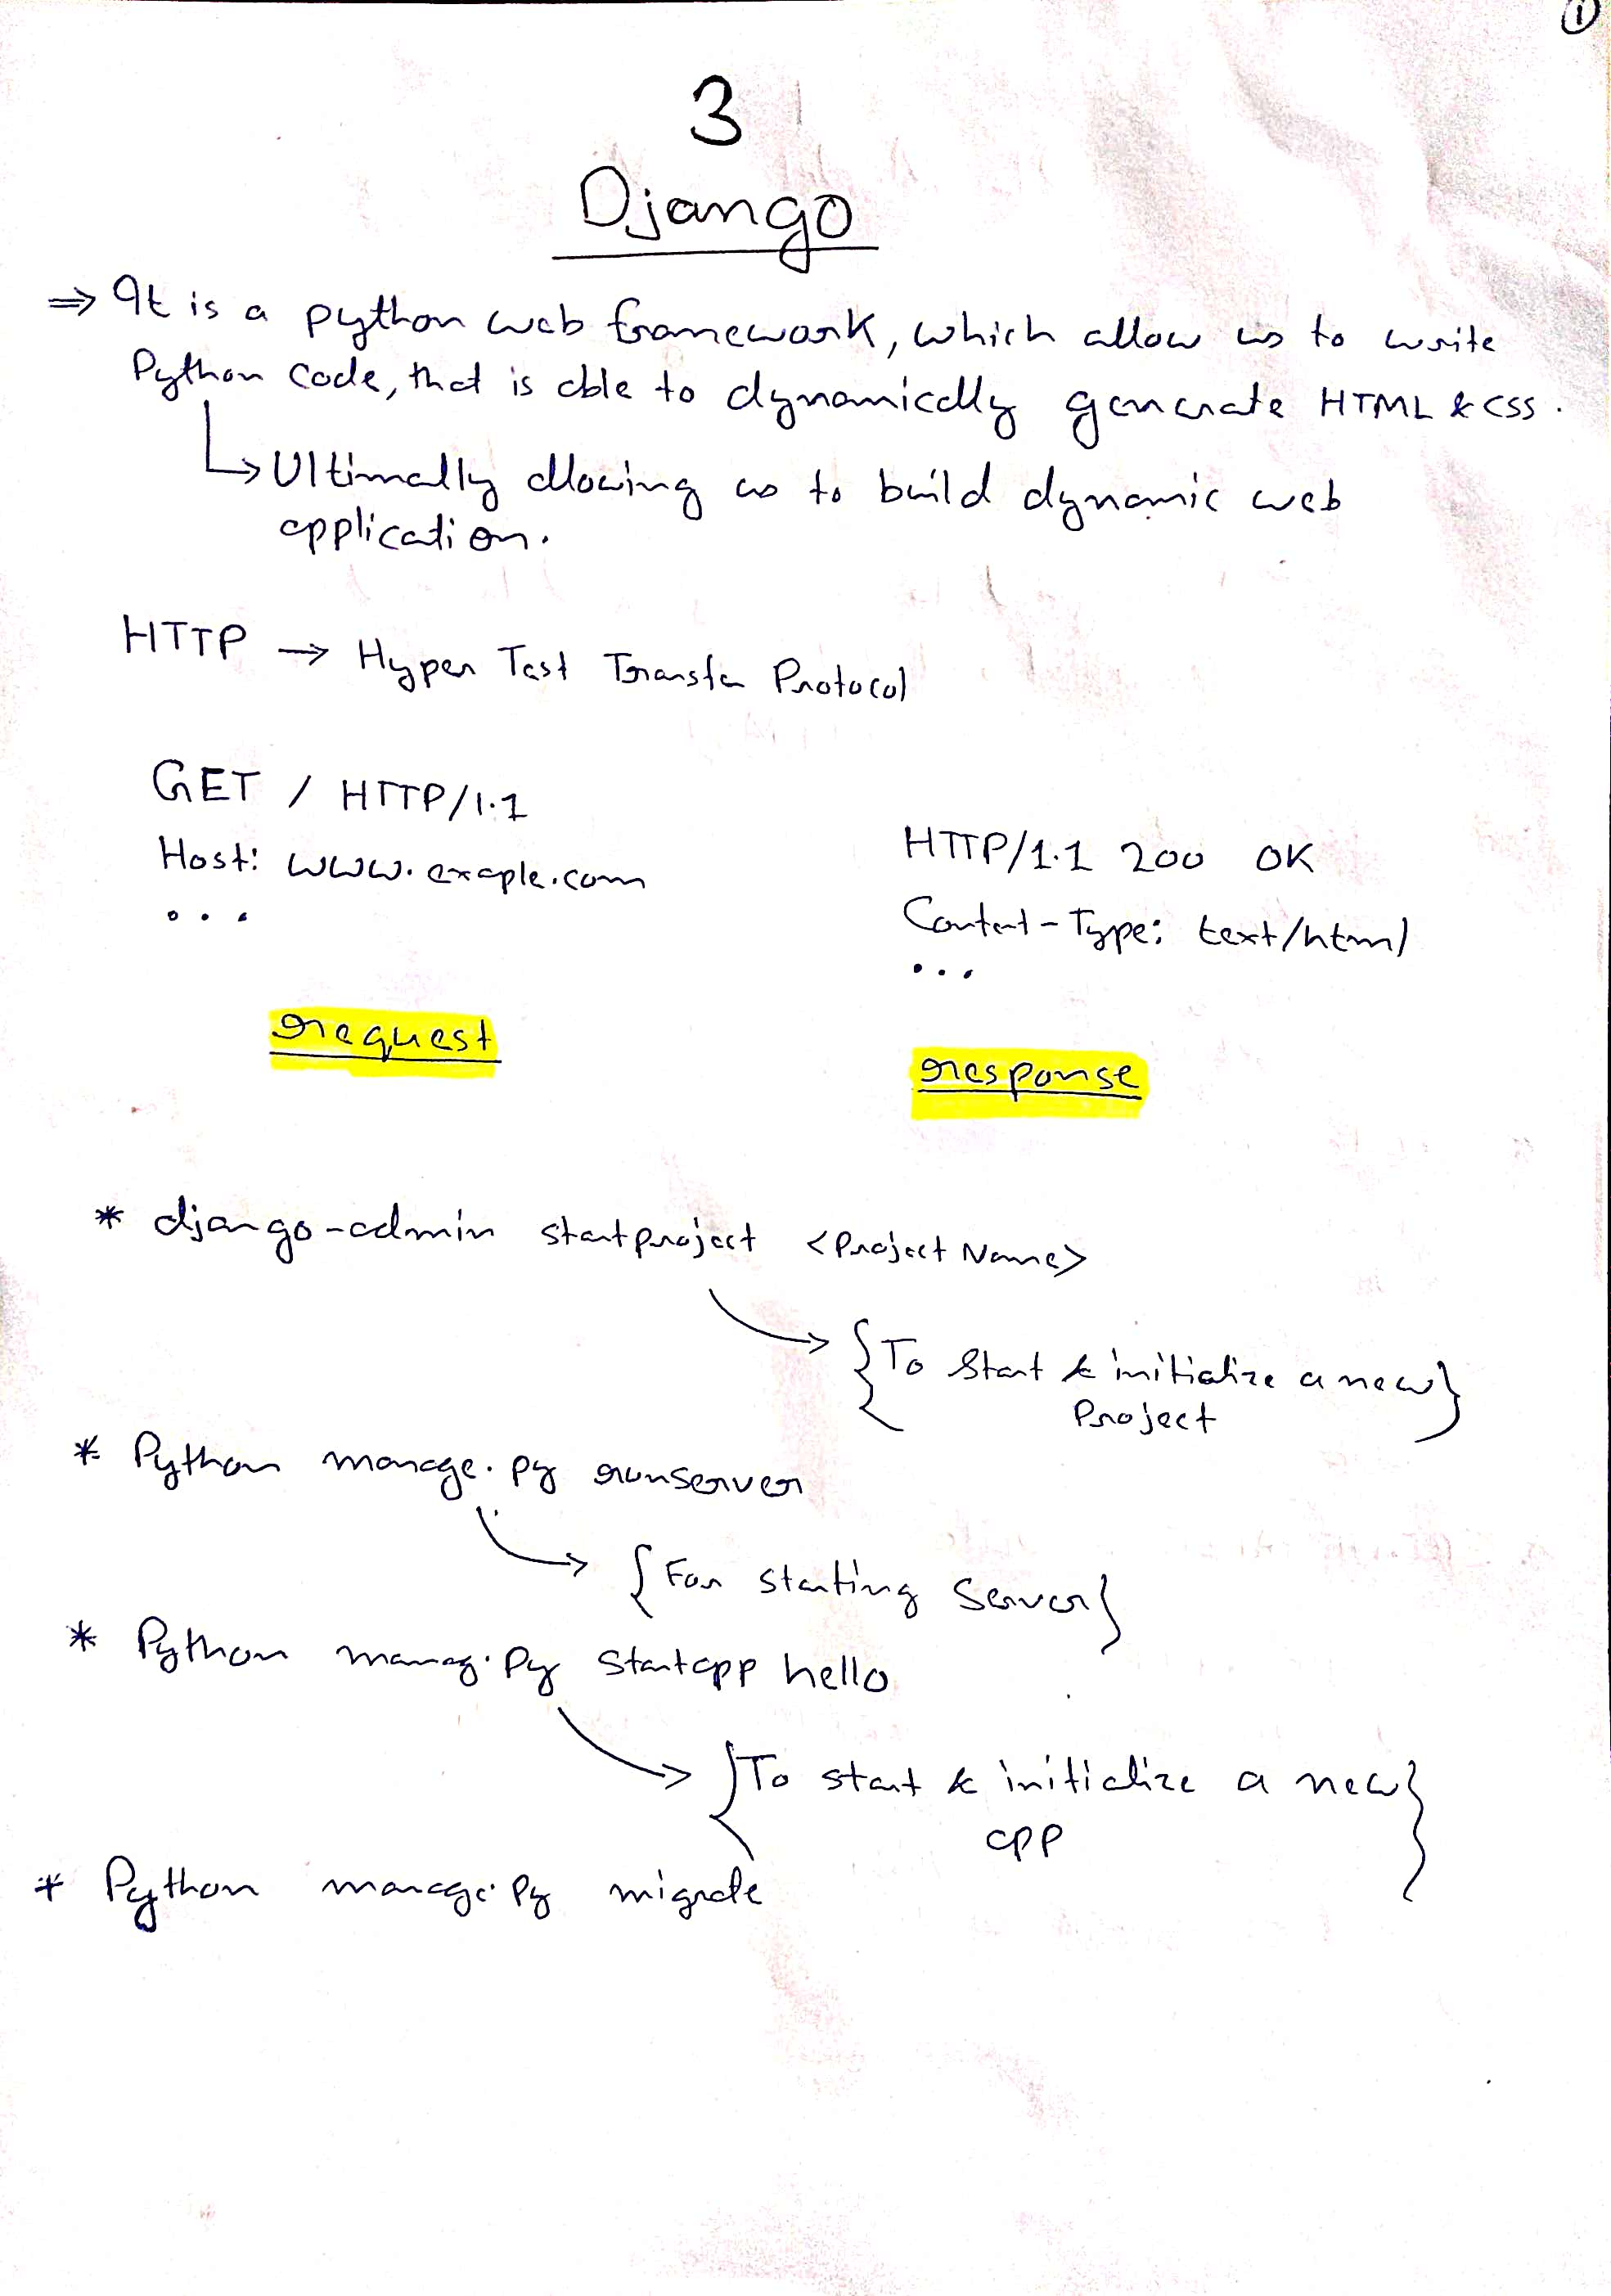 ①
3
Django
⇒ It is a python web framework, which allow us to write
Python code, that is able to dynamically generate HTML & CSS.
↳ Ultimally allowing us to build dynamic web
application.
HTTP → Hyper Test Transfer Protocol
GET / HTTP/1.1
Host: www.exaple.com
...
request
HTTP/1.1 200 OK
Content-Type: text/html
...
response
* django-admin startproject <Project Name>
→ {To start & initialize a new}
Project
* Python manage.py runserver
→ {For starting Server}
* Python manag.py startapp hello
→ {To start & initialize a new}
app
* Python manage.py migrate